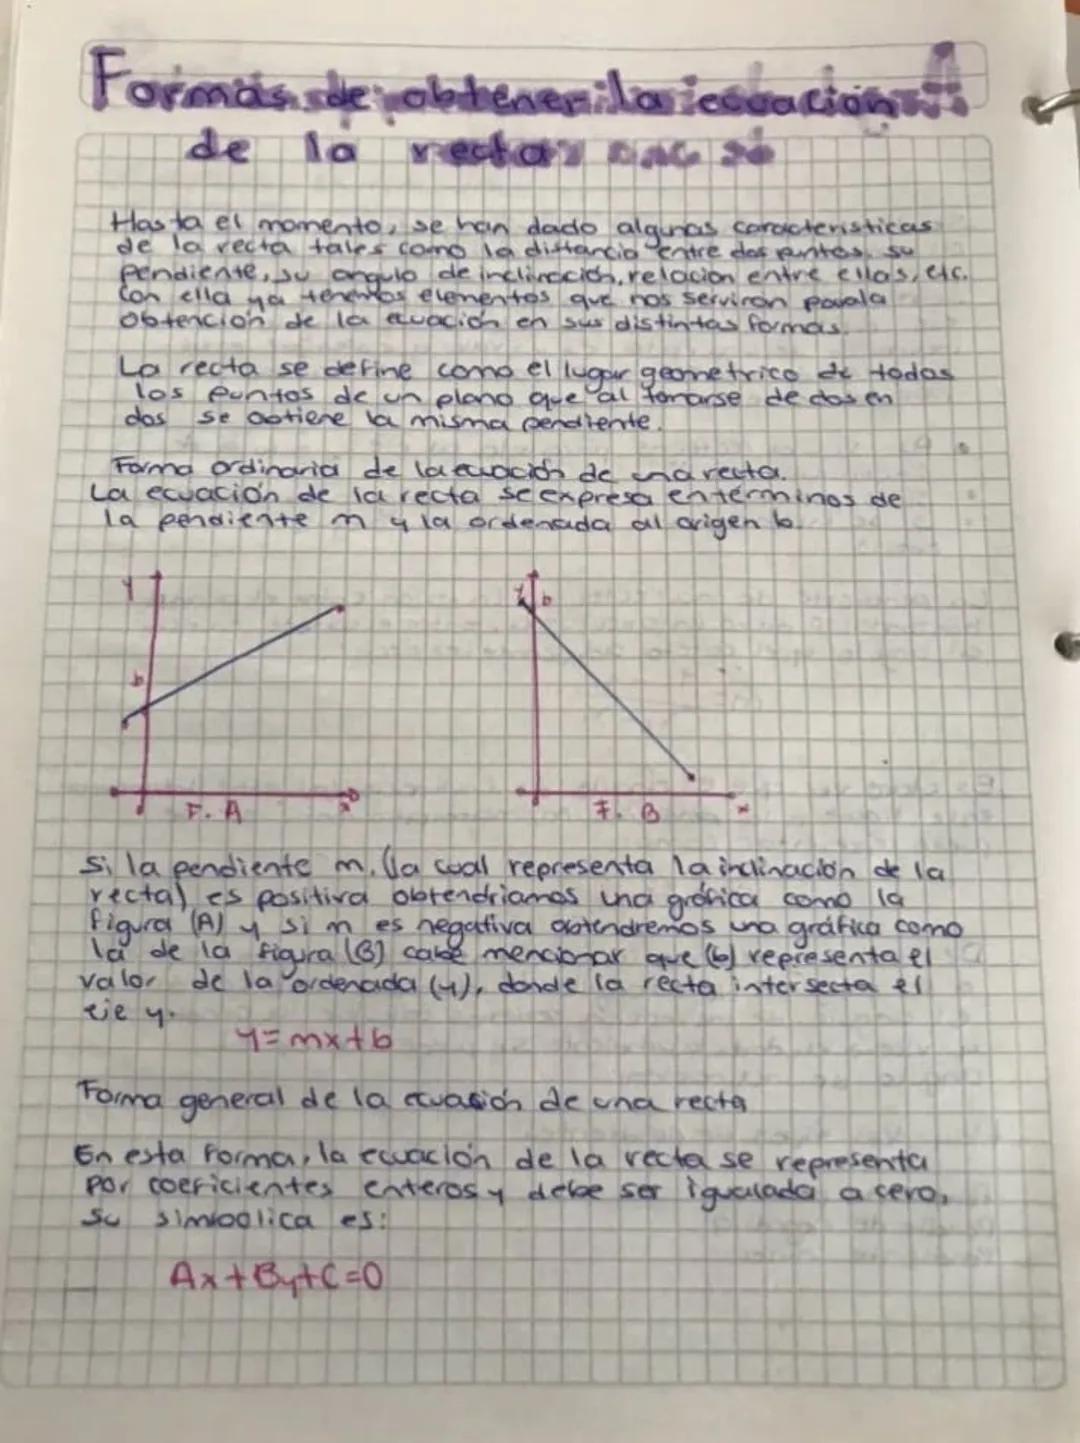 Formas de obtener la ecuación
de la recta
Hasta el momento, se han dado algunas caracteristicas
de la recta tales como la distancia entre dos puntos, su
pendiente, su angulo de inclinación, relación entre ellas, etc.
Con ella ya tenemos elementos que nos serviran para la
obtención de la ecuación en sus distintas formas.
La recta se define como el lugar geometrico de todos
los puntos de un plano que al tomarse de dos en
dos se obtiene la misma pendiente.
Forma ordinaria de la ecuación de una recta.
La ecuación de la recta se expresa en términos de
la pendiente m y la ordenada al origen b.
Y
b
F. A
x
Y
b
F. B
x
Si la pendiente m, (la cual representa la inclinación de la
recta) es positiva obtendriamos una gráfica como la
figura (A) y si m es negativa obtendremos una gráfica como
la de la figura (B) cabe mencionar que (b) representa el
valor de la ordenada (y), donde la recta intersecta el
eje y.
y=mx+b
Forma general de la ecuasión de una recta
En esta forma, la ecuación de la recta se representa
por coeficientes enteros y debe ser igualada a cero,
su simbolica es:
Ax+By+C=0